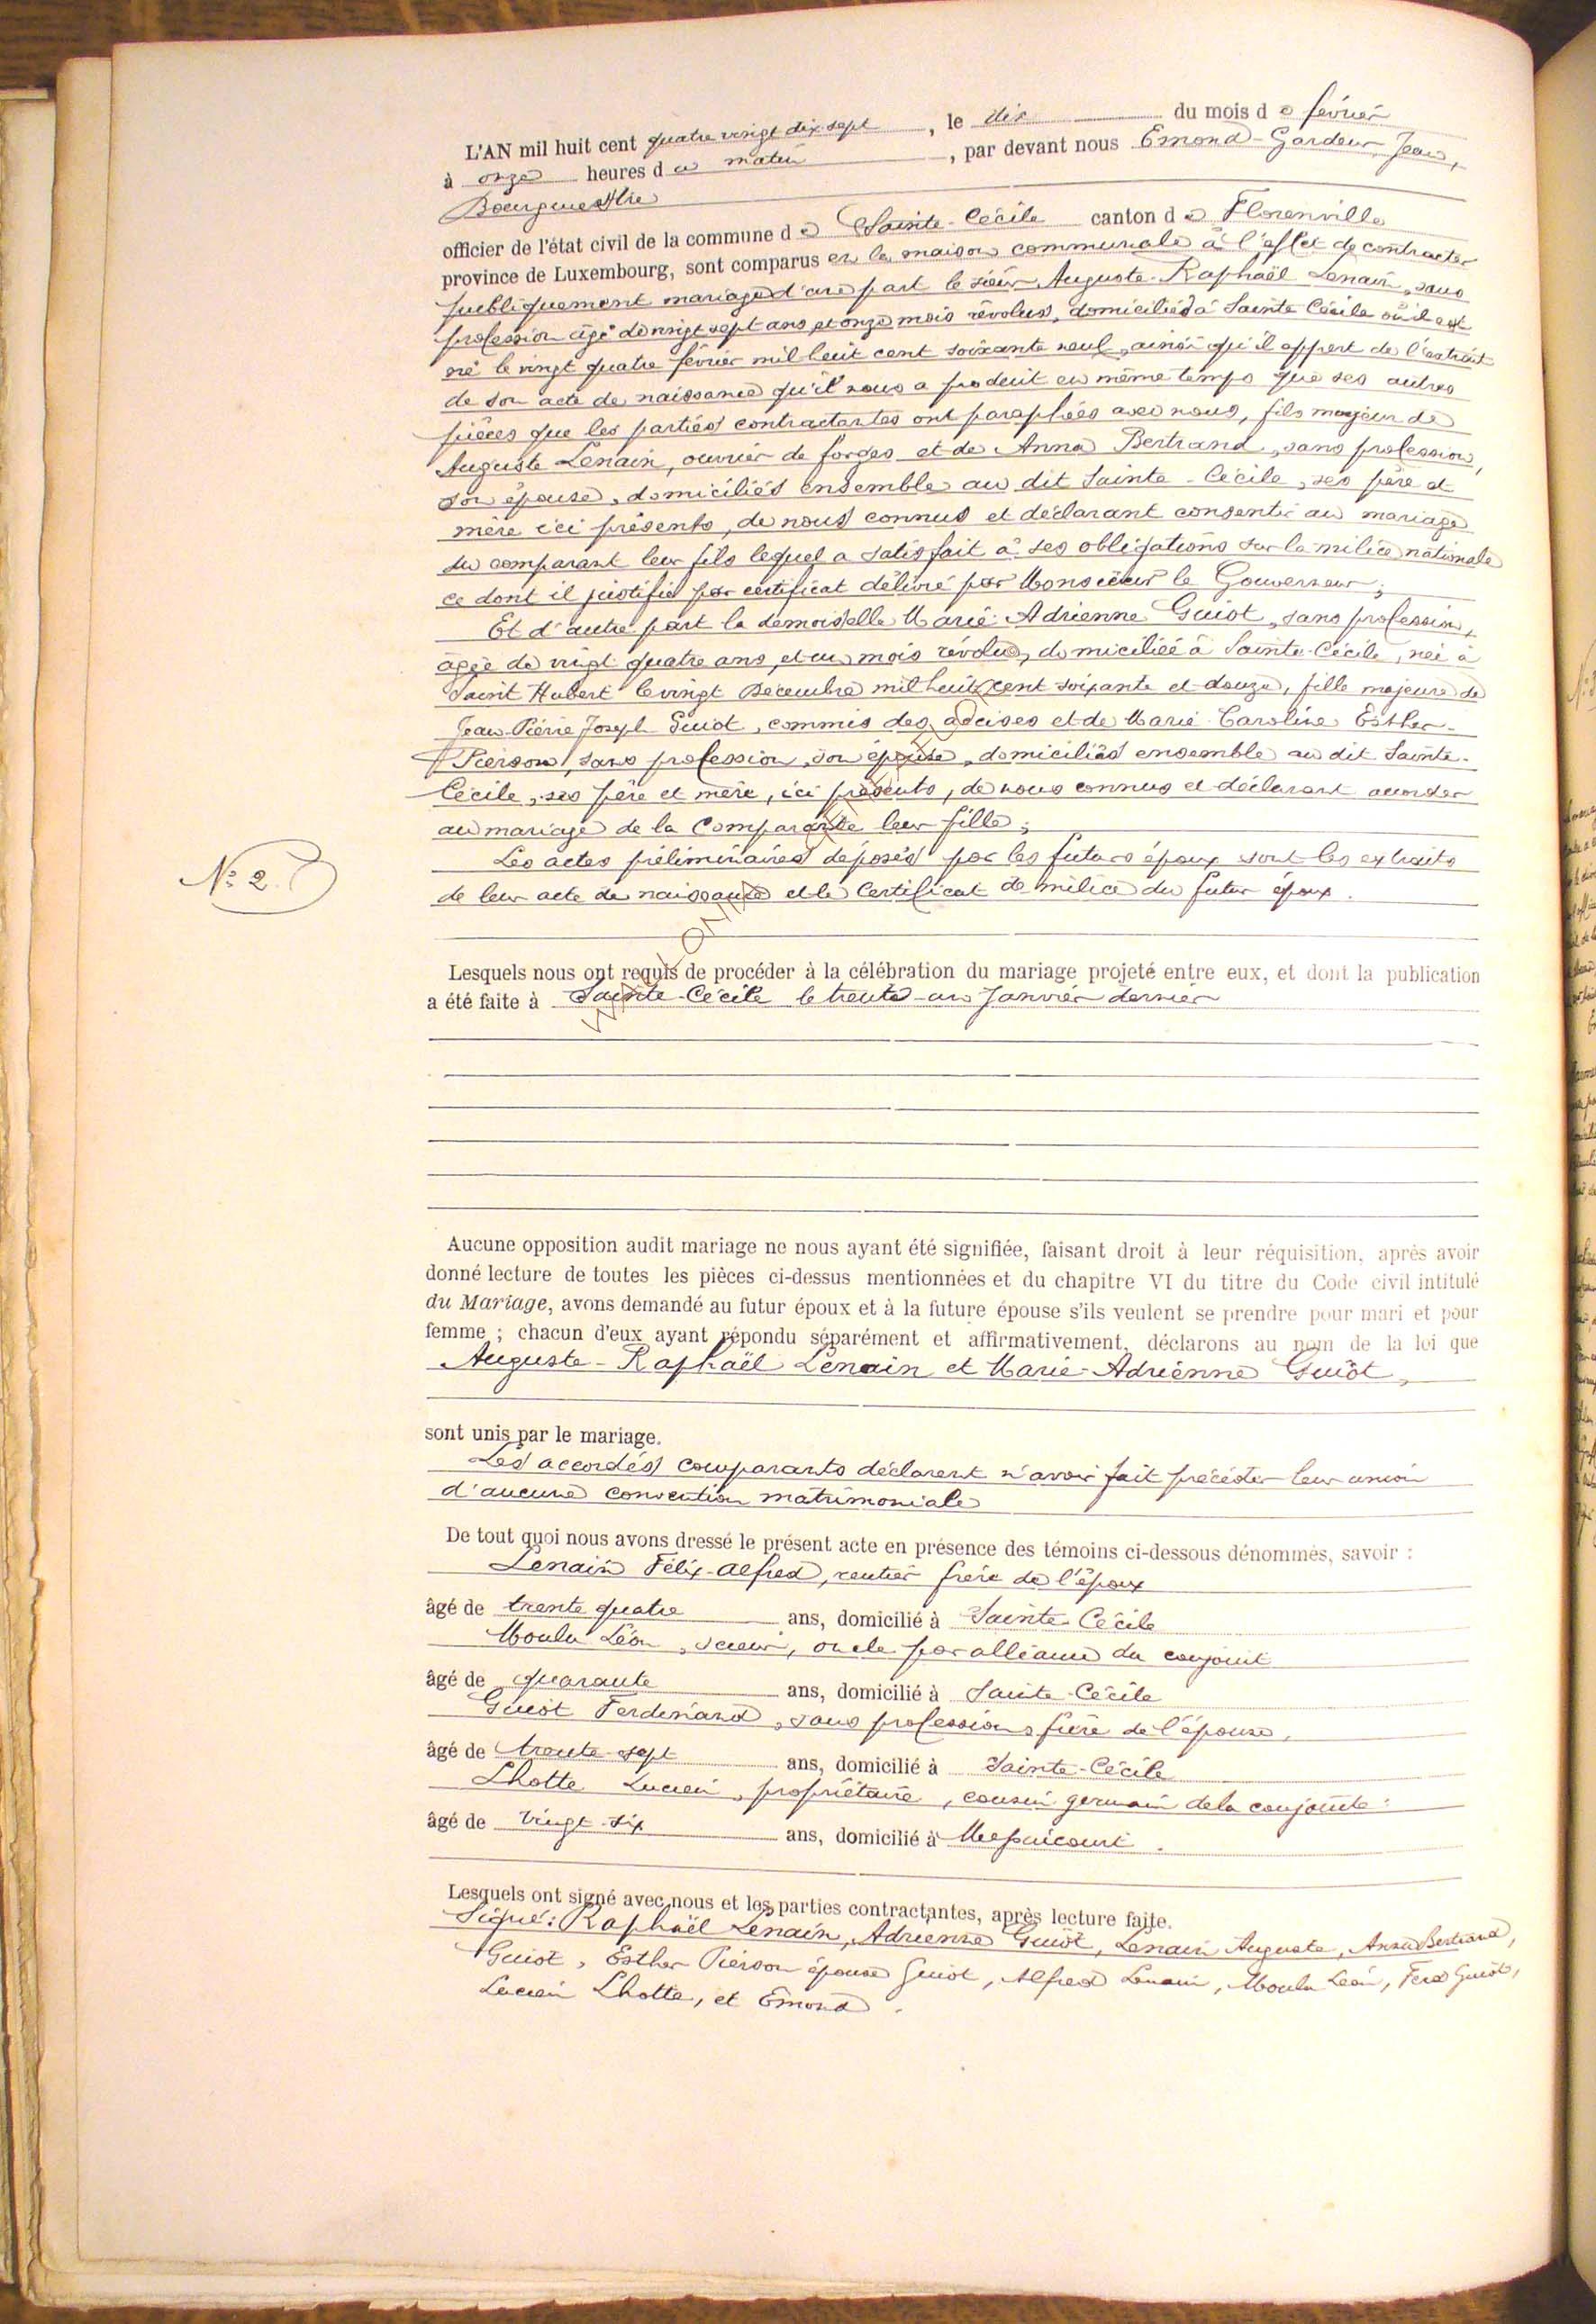 L'AN mil huit cent quatre vingt dix-sept, le dix du mois de février
à onze heures du matin, par devant nous Emond-Gardeur, Jean,
Bourgmestre
officier de l'état civil de la commune de Sainte-Cécile canton de Florenville
province de Luxembourg, sont comparus en la maison communale à l'effet de contracter
publiquement mariage d'une part le sieur Auguste-Raphaël Lenain, sans
profession âgé de vingt sept ans et onze mois révolus, domicilié à Sainte Cécile où il est
né le vingt quatre février mil huit cent soixante neuf, ainsi qu'il appert de l'extrait
de son acte de naissance qu'il nous a produit en même temps que ses autres
pièces que les parties contractantes ont paraphées avec nous, fils majeur de
Auguste Lenain, ouvrier de forges et de Anna Bertrand, sans profession,
son épouse, domiciliés ensemble au dit Sainte-Cécile, ses père et
mère ici présents, de nous connus et déclarant consentir au mariage
du comparant leur fils lequel a satisfait à ses obligations sur la milice nationale
ce dont il justifie par certificat délivré par Monsieur le Gouverneur;
Et d'autre part la demoiselle Marie-Adrienne Guiot, sans profession,
âgée de vingt quatre ans, et un mois révolus, domiciliée à Sainte-Cécile, née à
Saint Hubert le vingt Décembre mil huit cent soixante et douze, fille majeure de
Jean-Pierre Joseph Guiot, commis des accises et de Marie-Caroline Esther-
Pierson, sans profession, son épouse, domiciliés ensemble au dit Sainte-
Cécile, ses père et mère, ici présents, de nous connus et déclarant accorder
au mariage de la Comparante leur fille;
Les actes préliminaires déposés par les futurs époux sont les extraits
N° 2.
de leur acte de naissance et le Certificat de milice du futur époux.
Lesquels nous ont requis de procéder à la célébration du mariage projeté entre eux, et dont la publication
a été faite à Sainte-Cécile le trente-un Janvier dernier
Aucune opposition audit mariage ne nous ayant été signifiée, faisant droit à leur réquisition, après avoir
donné lecture de toutes les pièces ci-dessus mentionnées et du chapitre VI du titre du Code civil intitulé
du Mariage, avons demandé au futur époux et à la future épouse s'ils veulent se prendre pour mari et pour
femme ; chacun d'eux ayant répondu séparément et affirmativement, déclarons au nom de la loi que
Auguste-Raphaël Lenain et Marie-Adrienne Guiot,
sont unis par le mariage.
Les accordés comparants déclarent n'avoir fait précéder leur union
d'aucune convention matrimoniale
De tout quoi nous avons dressé le présent acte en présence des témoins ci-dessous dénommés, savoir :
Lenain Félix-Alfred, rentier frère de l'époux
âgé de trente quatre ans, domicilié à Sainte-Cécile
Moulu Léon, scieur, oncle par alliance du conjoint
âgé de quarante ans, domicilié à Sainte-Cécile
Guiot Ferdinand, sans profession, frère de l'épouse,
âgé de trente-sept ans, domicilié à Sainte-Cécile
Lhotte Lucien, propriétaire, cousin germain de la conjointe.
âgé de vingt-six ans, domicilié à
Lesquels ont signé avec nous et les parties contractantes, après lecture faite.
Signé: Raphaël Lenain, Adrienne Guiot, Lenain Auguste, Anna Bertrand,
Guiot, Esther Pierson épouse Guiot, Alfred Lenain, Moulu Léon, Ferd Guiot,
Lucien Lhotte, et Emond.